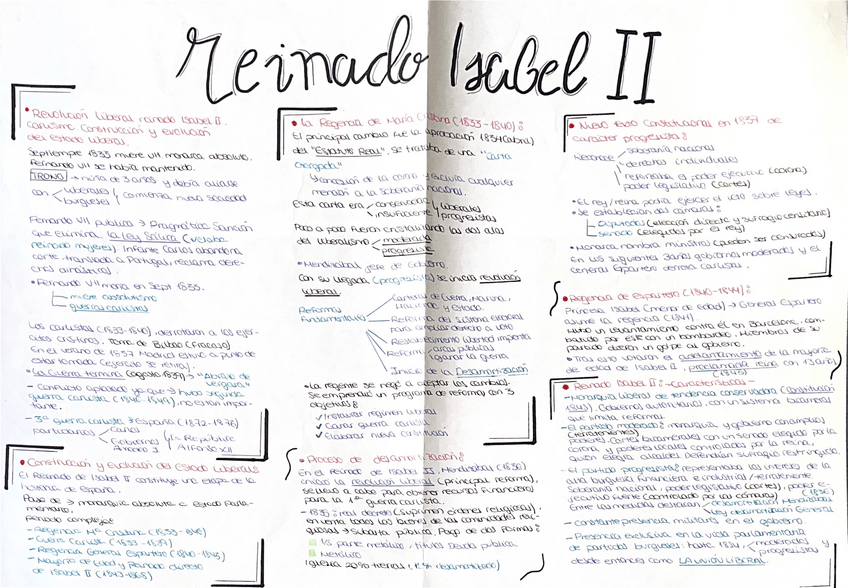 Reinado Isabel II
• Revolución liberal reinado Isabel II.
carlismo Construcción y evolución
del Estado liberal.
Septiembre 1833 muere VII, monarca absoluto.
Fernando VII se había mantenido.
TRONO → niña de 3 años y debía aliarse
con liberales
burgueses
comienza nueva sociedad
Fernando VII publica → Pragmática Sanción
que elimina la Ley Sálica (vetaba
reinado mujeres). Infante Carlos abandona
corte, trasladó a Portugal, reclama dere-
chos dinásticos.
• Fernando VII moría en Sept 1833.
muere absolutismo
guerras carlistas
Los carlistas (1833-1840), derrotaron a los ejér-
citos cristinos. Toma de Bilbao (Fracaso)
En el verano de 1837 Madrid estuvo a punto de
estar tomada (ejército se retira).
• La Guerra termina (agosto 1839) → "Abrazo de
Vergara"
- Conflicto aplazado ya que → hubo segunda
guerra carlista (1846-1849), no es tan impor-
tante.
- 3ª guerra carlista → España (1872-1876)
participaron
Carlos
Gobiernos
Amadeo I
1ª República
Alfonso XII
• Construcción y evolución del Estado Liberal:
El Reinado de Isabel II constituye una etapa de la
historia de España.
Paso de → monarquía absoluta a Estado Parla-
mentario.
Periodo complejo:
- Regencia Mª Cristina (1833-1840)
- Guerra Carlista (1833-1839)
- Regencia General Espartero (1840-1843)
- Mayoría de Edad y Reinado directo
de Isabel II (1843-1868)
• La Regencia de María Cristina (1833-1840):
El principal cambio fue la aprobación 1834 (abril)
del "Estatuto Real", se trataba de una "Carta
Otorgada"
concesión de la corona y excluía cualquier
mención a la soberanía nacional.
Esta carta era
conservadora
insuficiente
liberales
progresistas
Poco a poco fueron cristalizando las dos alas
del liberalismo
moderada
progresista
• Mendizábal jefe de Gobierno.
Con su llegada (progresista) se iniciará revolución
liberal.
Reformas
Fundamentales
Carteras de Guerra, Marina,
Hacienda y Estado.
Reforma del sistema electoral
para ampliar derecho a voto
Restablecimiento libertad imprenta
Reform. cargas públicas
lograr la guerra
Inicio de la Desamortización
• La regente se negó a aceptar los cambios.
Se emprendió un programa de reformas con 3
objetivos:
✓ Instaurar régimen liberal
✓ Ganar guerra carlista
✓ Elaborar nueva Constitución
• Proceso de desamortización:
En el Reinado de Isabel II, Mendizábal (1836)
inició la revolución liberal (principal reforma),
se llevó a cabo para obtener recursos financieros
para la 1ª guerra carlista.
- 1835: real decreto (suprimen órdenes religiosas).
en venta todos los bienes de las comunidades reli-
giosas → Subasta pública. Pago de dos formas:
1/5 parte metálico, títulos deuda pública
Metálico
Iglesia 20% tierras,
• Nuevo texto Constitucional en 1837 de
carácter progresista:
Reconoce
soberanía nacional
derechos individuales
poder ejecutivo (corona)
poder legislativo (cortes)
• El rey/reina podía ejercer el veto sobre leyes.
• Se establecieron dos cámaras:
diputados (elección directa y sufragio censitario)
senado (elegidos por el rey)
• Monarca nombra ministros (pueden ser censurados)
En los siguientes 3 años gobiernos moderados y el
General Espartero derrota carlistas.
• Regencia de Espartero (1840-1844):
Princesa Isabel (menor de edad) → General Espartero
asume la regencia (1841)
Hubo un levantamiento contra él en Barcelona, com-
batido por este con un bombardeo. Miembros de su
partido dieron un golpe al gobierno.
• Tras esto votaron el adelantamiento de la mayoría
de edad de Isabel II, proclamada reina con 13 años
(1843)
• Reinado Isabel II: - Características -
- Monarquía liberal de tendencia conservadora (Constitución
1845). Gobiernos autoritarios, con un sistema bicameral
que limita reforma.
- El partido moderado: monarquía y gobierno con amplios
(terratenientes)
poderes. Cortes bicamerales con un senado elegido por la
corona, y poderes locales controlados por la reina,
quien elegía alcaldes. Defendían sufragio restringido.
- El partido progresista: representaba los intereses de la
alta burguesía financiera e industrial / terrateniente
Soberanía nacional, poder legislativo (cortes), poder
ejecutivo fuerte (controlado por las cámaras) (1836)
Entre las medidas destacan
desamortización Mendizábal
Ley desamortización General
- Constante presencia militares en el gobierno.
- Presencia exclusiva en la vida parlamentaria
de partidos burgueses: hasta 1854,
moderados
progresistas
y
desde entonces como LA UNIÓN LIBERAL.